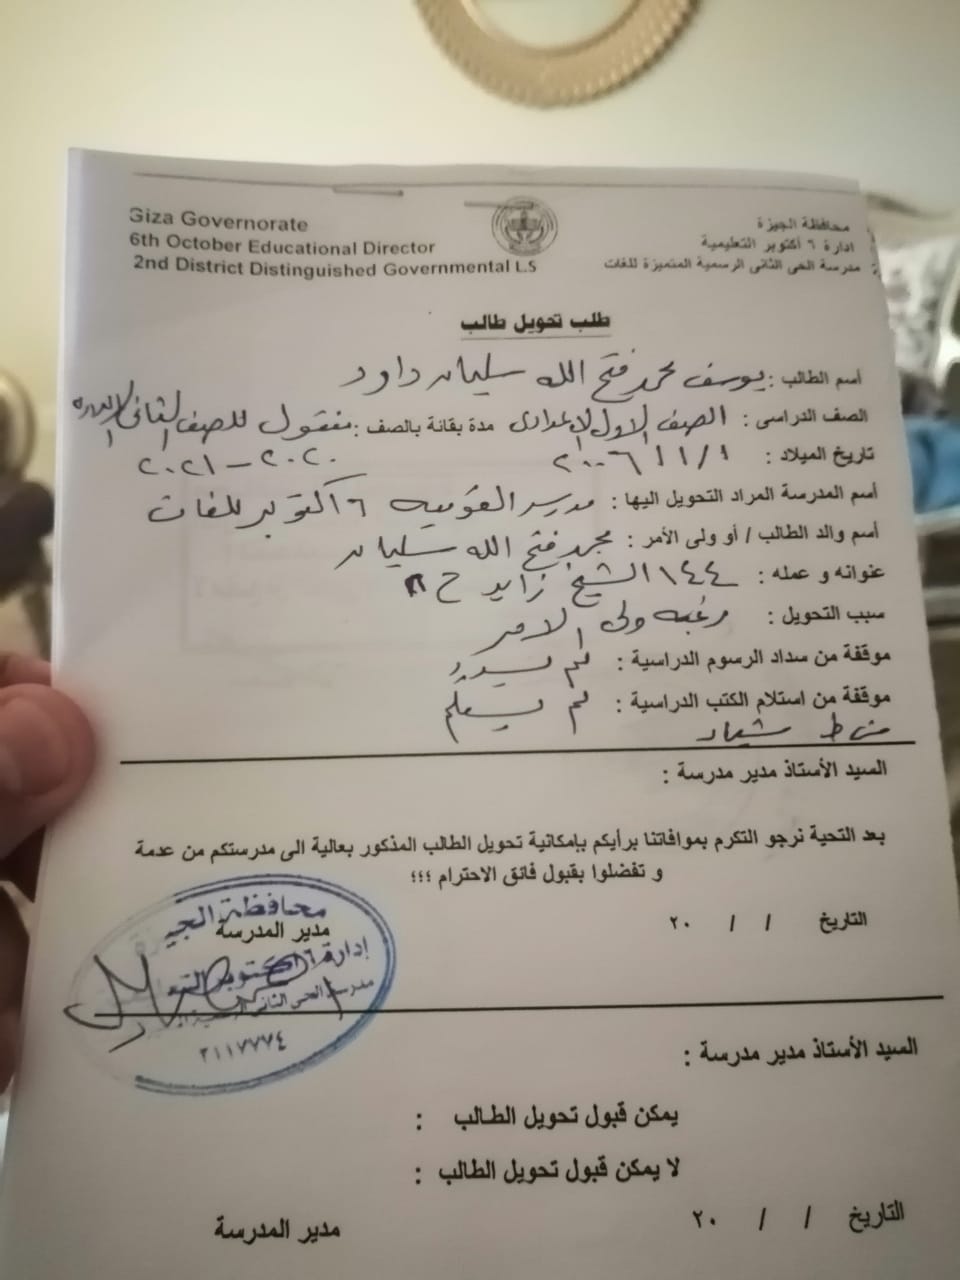 Giza Governorate
6th October Educational Director
2nd District Distinguished Governmental L.S
محافظة الجيزة
ادارة ٦ أكتوبر التعليمية
مدرسة الحى الثانى الرسمية المتميزة للغات
طلب تحويل طالب
أسم الطالب : يوسف محمد فتح الله سليمان داود
الصف الدراسى : الصف الاول الاعدادى مدة بقائة بالصف : منقول للصف الثانى
تاريخ الميلاد : ٢٠٠٦/١١/١ ٢٠٢٠ - ٢٠٢١
أسم المدرسة المراد التحويل اليها : مدرسه القوميه ٦ اكتوبر للغات
أسم والد الطالب / أو ولى الأمر : محمد فتح الله سليمان
عنوانه و عمله : ١٤٤ الشيخ زايد ح
سبب التحويل : رغبه ولى الامر
موقفة من سداد الرسوم الدراسية : لم يسدد
موقفة من استلام الكتب الدراسية : لم يستلم
السيد الأستاذ مدير مدرسة :
بعد التحية نرجو التكرم بموافاتنا برأيكم بإمكانية تحويل الطالب المذكور بعالية الى مدرستكم من عدمة
و تفضلوا بقبول فائق الاحترام ؛؛؛
التاريخ / / ٢٠
مدير المدرسة
محافظة الجيزة
إدارة ٦ اكتوبر
مدرسة الحى الثانى
٢١١٧٧٧٤
السيد الأستاذ مدير مدرسة :
يمكن قبول تحويل الطالب :
لا يمكن قبول تحويل الطالب :
التاريخ / / ٢٠
مدير المدرسة